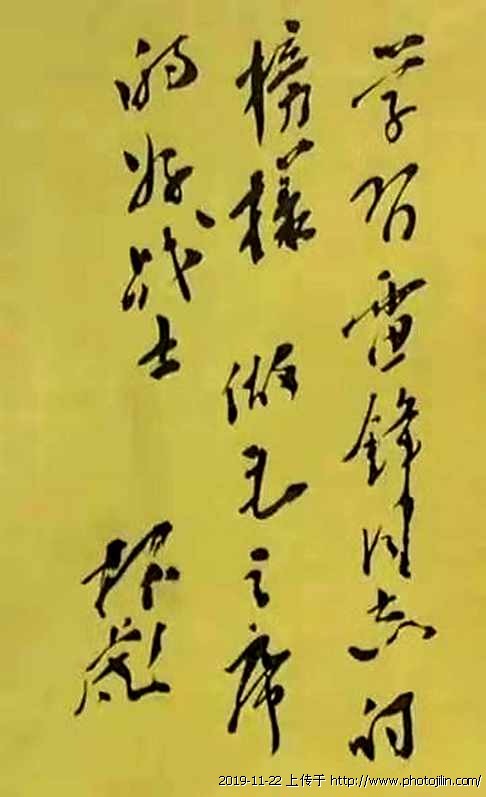 学习雷锋同志的
榜樣 做毛主席
的好战士
林彪
2019-11-22 上传于 http://www.photojilin.com/